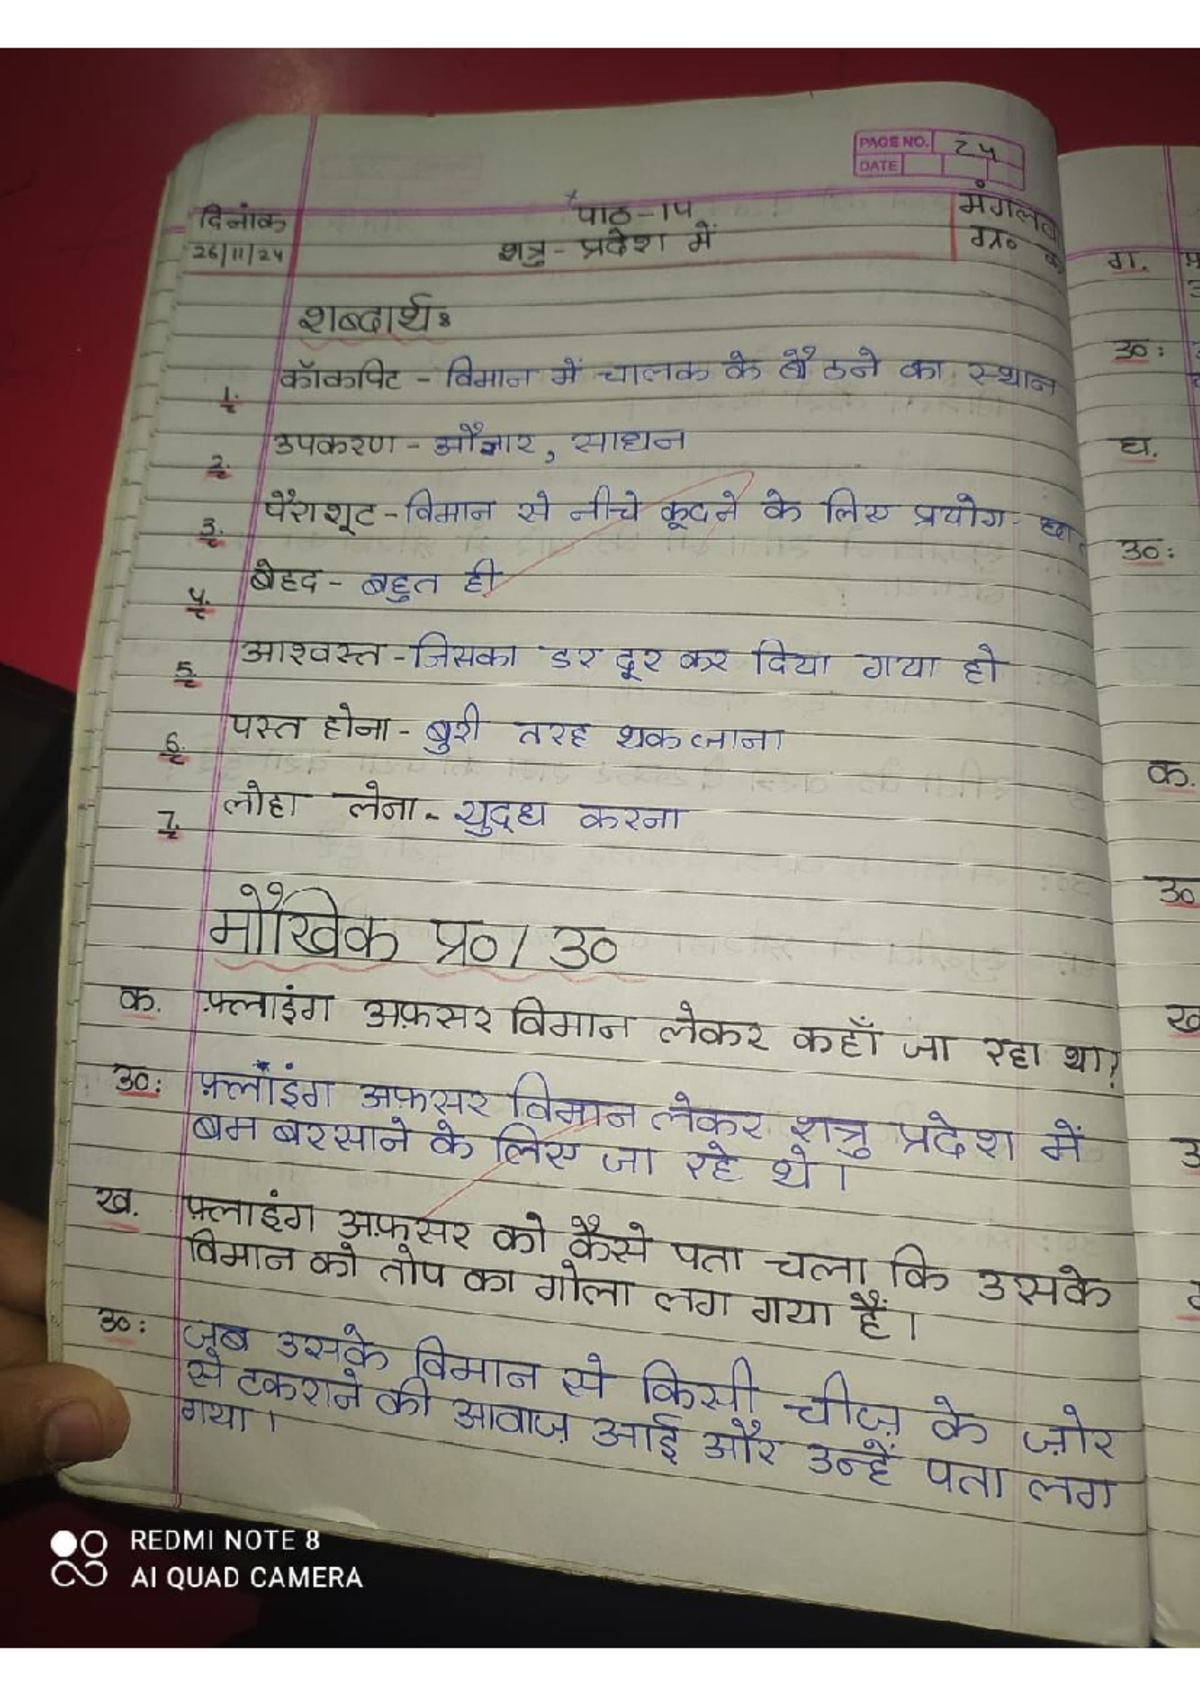 PAGE NO. 24
DATE
दिनांक
26/11/24
पाठ-14
शत्रु-प्रदेश में
गृ०
शब्दार्थः
1. कॉकपिट - विमान में चालक के बैठने का स्थान
2. उपकरण - औज़ार, साधन
3. पैराशूट - विमान से नीचे कूदने के लिए प्रयोग
4. बेहद - बहुत ही
5. आश्वस्त - जिसका डर दूर कर दिया गया हो
6. पस्त होना - बुरी तरह थक जाना
7. लोहा लेना - युद्ध करना
मौखिक प्र० / उ०
क. फ़्लाइंग अफ़सर विमान लेकर कहाँ जा रहा था?
उ०: फ़्लाइंग अफ़सर विमान लेकर शत्रु प्रदेश में
बम बरसाने के लिए जा रहे थे।
ख. फ़्लाइंग अफ़सर को कैसे पता चला कि उसके
विमान को तोप का गोला लग गया हैं।
उ०: जब उसके विमान से किसी चीज़ के ज़ोर
से टकराने की आवाज़ आई और उन्हें पता लग
गया।
ग.
उ०:
घ.
उ०:
क.
उ०
ख
REDMI NOTE 8
AI QUAD CAMERA